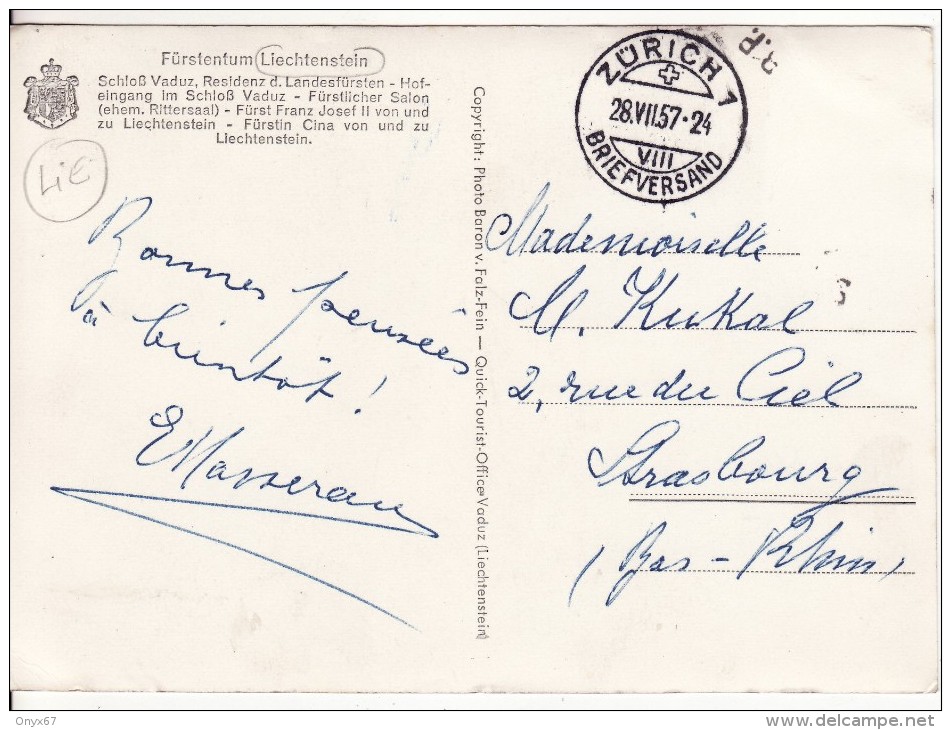 Fürstentum Liechtenstein
Schloß Vaduz, Residenz d. Landesfürsten - Hof-
eingang im Schloß Vaduz - Fürstlicher Salon
(ehem. Rittersaal) - Fürst Franz Josef II von und
zu Liechtenstein - Fürstin Gina von und zu
Liechtenstein.
LiE
Bonnes pensées
à bientôt !
EMasserau
Copyright: Photo Baron v. Falz-Fein — Quick-Tourist-Office Vaduz (Liechtenstein)
ZÜRICH 1
28.VII.57-24
VIII
BRIEFVERSAND
Mademoiselle
M. Kukal
2, rue du Ciel
Strasbourg
(Bas-Rhin)
Onyx67
www.delcampe.net